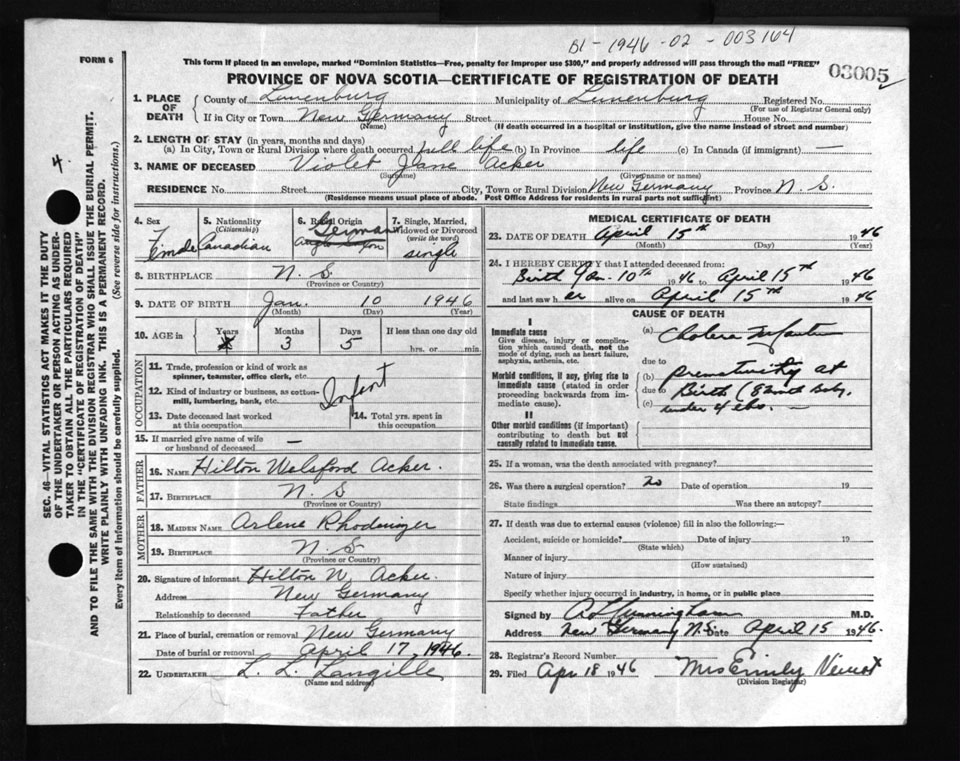 BI-1946-02-003164
FORM 6
This form if placed in an envelope, marked "Dominion Statistics—Free, penalty for improper use $300," and properly addressed will pass through the mail "FREE"
PROVINCE OF NOVA SCOTIA—CERTIFICATE OF REGISTRATION OF DEATH
03005
1. PLACE OF DEATH
County of Lunenburg Municipality of Lunenburg Registered No.
(For use of Registrar General only)
If in City or Town New Germany Street House No.
(Name) (If death occurred in a hospital or institution, give the name instead of street and number)
2. LENGTH OF STAY (in years, months and days)
(a) In City, Town or Rural Division where death occurred full life (b) In Province life (c) In Canada (if immigrant) —
3. NAME OF DECEASED Violet Jane Acker
(Surname) (Given name or names)
RESIDENCE No. Street City, Town or Rural Division New Germany Province N. S.
(Residence means usual place of abode. Post Office Address for residents in rural parts not sufficient)
4. Sex 5. Nationality (Citizenship) 6. Racial Origin 7. Single, Married, Widowed or Divorced (write the word)
Female Canadian German single
8. BIRTHPLACE N. S.
(Province or Country)
9. DATE OF BIRTH Jan. 10 1946
(Month) (Day) (Year)
10. AGE in Years Months Days If less than one day old
3 5 hrs. or min.
OCCUPATION
11. Trade, profession or kind of work as spinner, teamster, office clerk, etc.
Infant
12. Kind of industry or business, as cotton-mill, lumbering, bank, etc.
13. Date deceased last worked at this occupation
14. Total yrs. spent in this occupation
15. If married give name of wife or husband of deceased —
FATHER
16. NAME Hilton Walsford Acker.
17. BIRTHPLACE N. S
(Province or Country)
MOTHER
18. MAIDEN NAME Arlene Rhodenizer
19. BIRTHPLACE N. S
(Province or Country)
20. Signature of informant Hilton W. Acker.
Address New Germany
Relationship to deceased Father
21. Place of burial, cremation or removal New Germany
Date of burial or removal April 17, 1946.
22. UNDERTAKER L. L. Langille
(Name and address)
MEDICAL CERTIFICATE OF DEATH
23. DATE OF DEATH April 15th 1946
(Month) (Day) (Year)
24. I HEREBY CERTIFY that I attended deceased from:
Birth Jan. 10th 1946 to April 15th 1946
and last saw her alive on April 15th 1946
CAUSE OF DEATH
I
Immediate cause
Give disease, injury or complication which caused death, not the mode of dying, such as heart failure, asphyxia, asthenia, etc.
(a) Cholera Infantum
due to
Morbid conditions, if any, giving rise to immediate cause (stated in order proceeding backwards from immediate cause).
(b) Prematurity at
due to Birth (8 month baby,
(c) under 4 lbs. —
II
Other morbid conditions (if important) contributing to death but not causally related to immediate cause.
25. If a woman, was the death associated with pregnancy?
26. Was there a surgical operation? no Date of operation 19
State findings Was there an autopsy?
27. If death was due to external causes (violence) fill in also the following:—
Accident, suicide or homicide? Date of injury 19
(State which)
Manner of injury
(How sustained)
Nature of injury
Specify whether injury occurred in industry, in home, or in public place
Signed by Cunningham M.D.
Address New Germany N.S. Date April 15 1946.
28. Registrar's Record Number
29. Filed Apr 18 1946 Mrs Emily
(Division Registrar)
4.
SEC. 46—VITAL STATISTICS ACT MAKES IT THE DUTY
OF THE UNDERTAKER OR PERSON ACTING AS UNDER-
TAKER TO OBTAIN ALL THE PARTICULARS REQUIRED
IN THE "CERTIFICATE OF REGISTRATION OF DEATH"
AND TO FILE THE SAME WITH THE DIVISION REGISTRAR WHO SHALL ISSUE THE BURIAL PERMIT.
WRITE PLAINLY WITH UNFADING INK. THIS IS A PERMANENT RECORD.
Every item of information should be carefully supplied. (See reverse side for instructions.)